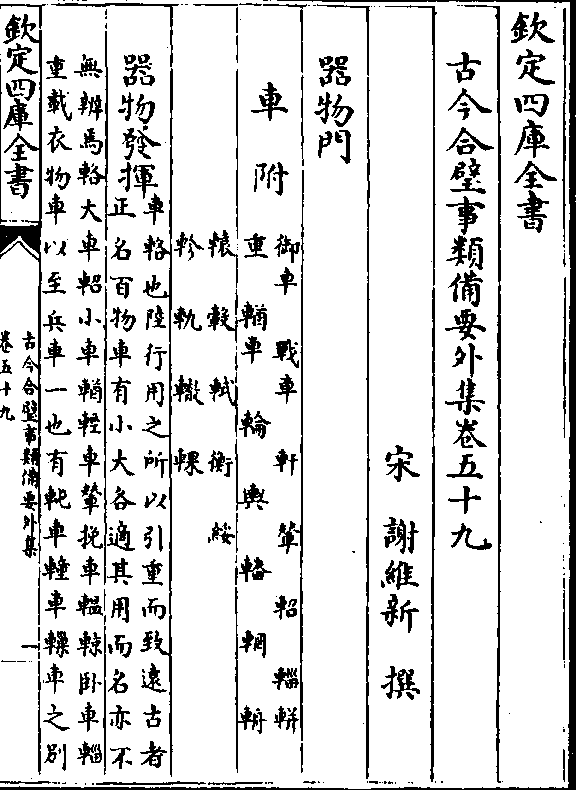 欽定四庫全書
古今合璧事類備要外集卷五十九
宋 謝維新 撰
器物門
車 附
御車 戰車 軒 輦 軺 輜軿
重 輶車 輪 輿 輅 輞 輈
轅 轂 軾 衡 綏
軫 軌 轍 輠
器物發揮
車輅也陸行用之所以引重而致遠古者
正名百物車有小大各適其用而名亦不
無辨焉輅大車軺小車輶輕車輦挽車輼輬卧車輜
重載衣物車以至兵車一也有軘車䡴車轈車之別
欽定四庫全書
古今合璧事類備要外集
卷五十九
一